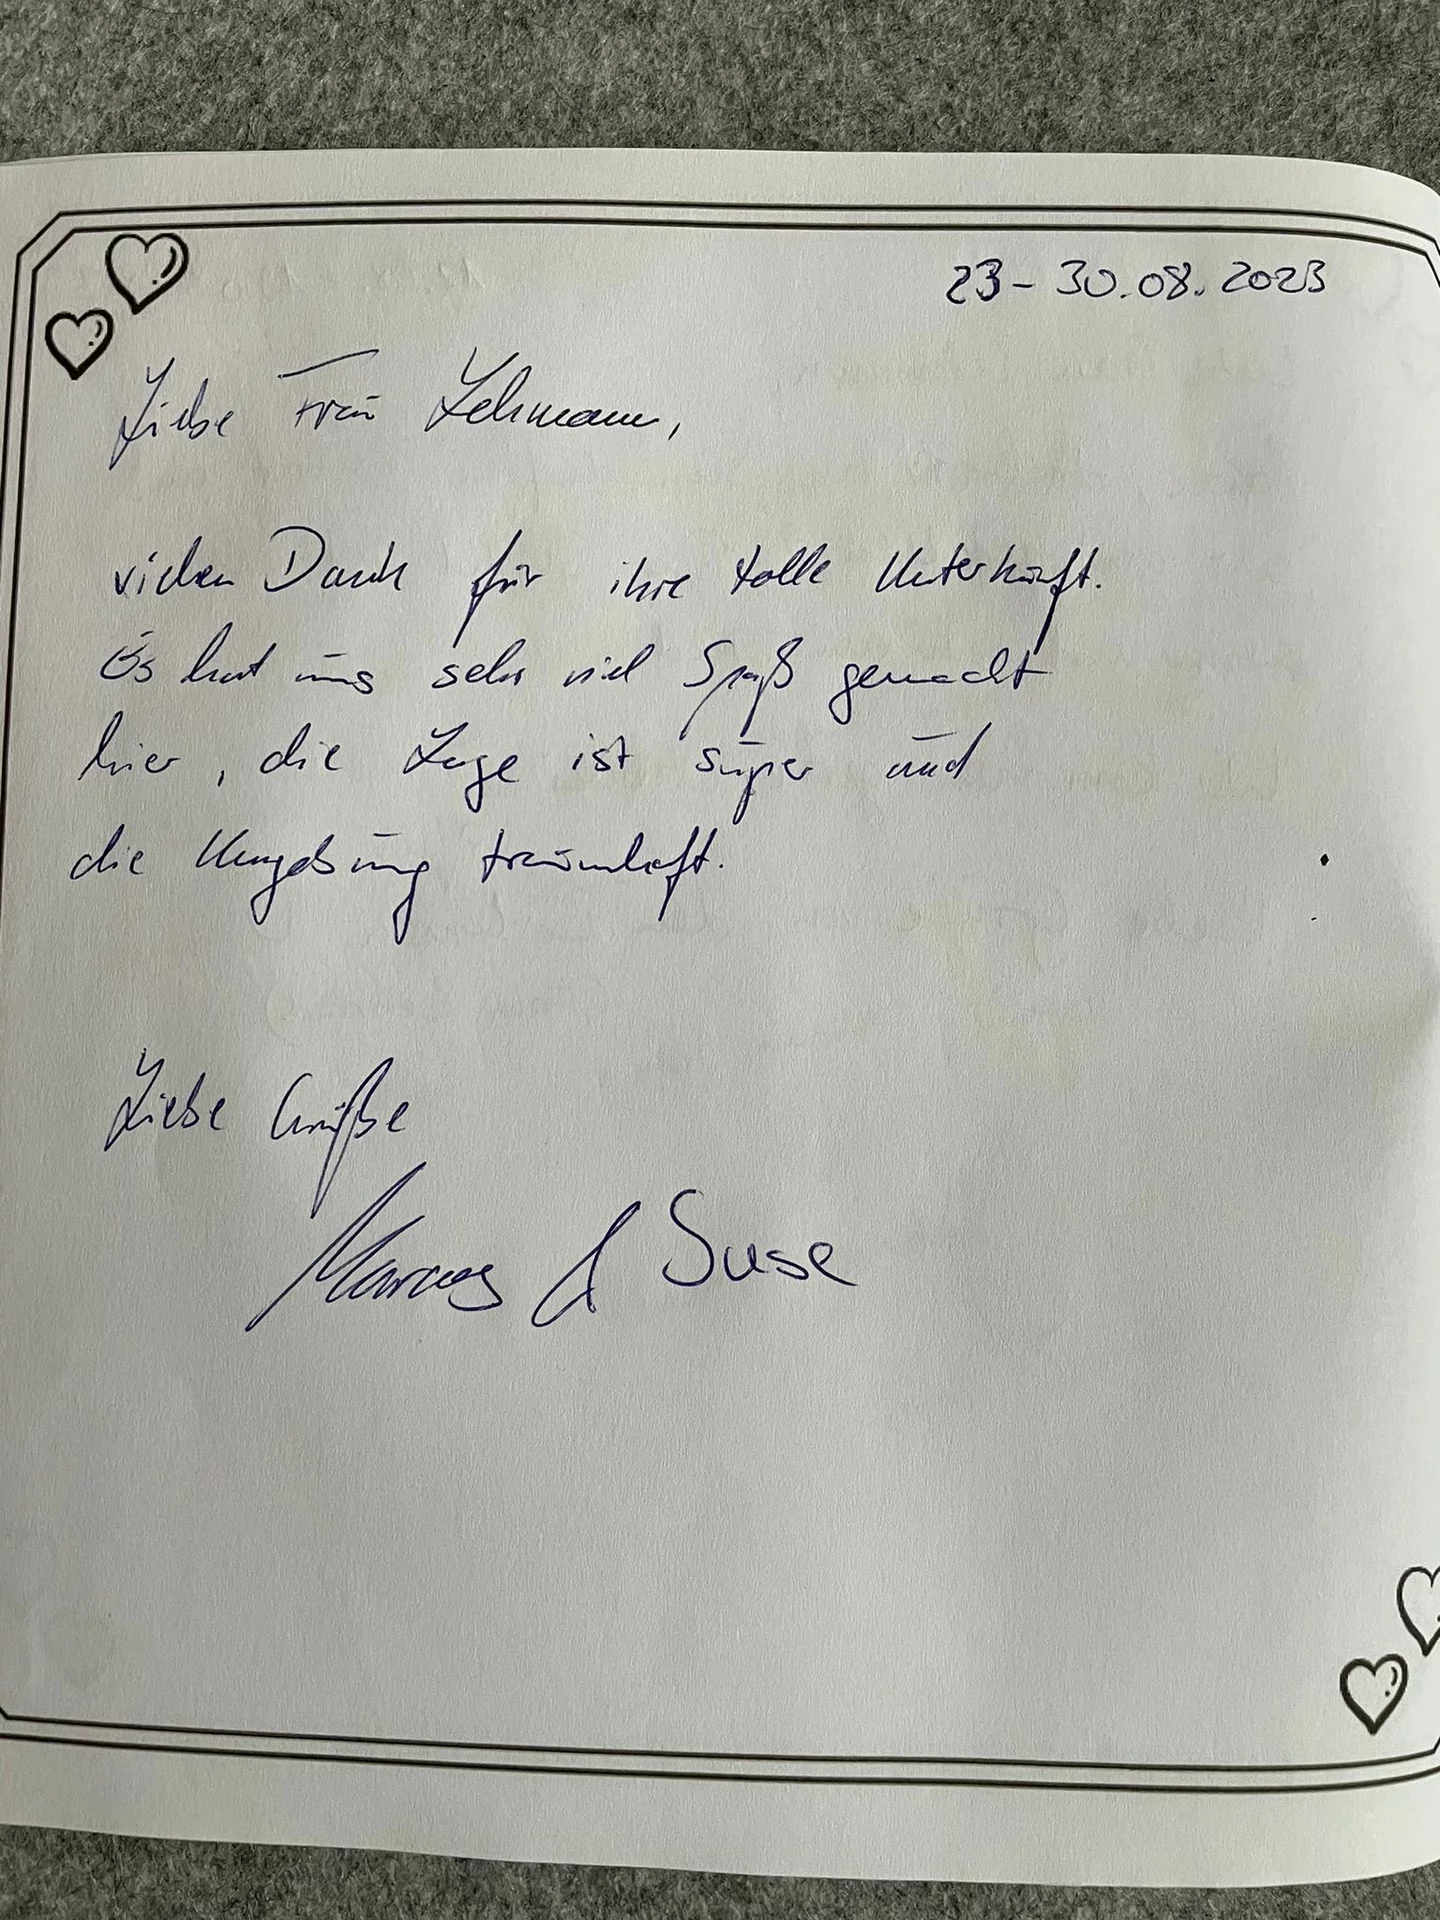 23 - 30.08.2023
Liebe Frau Lehmann,
vielen Dank für ihre tolle Unterkunft.
Es hat uns sehr viel Spaß gemacht
hier, die Lage ist super und
die Umgebung traumhaft.
Liebe Grüße
Marcus & Suse